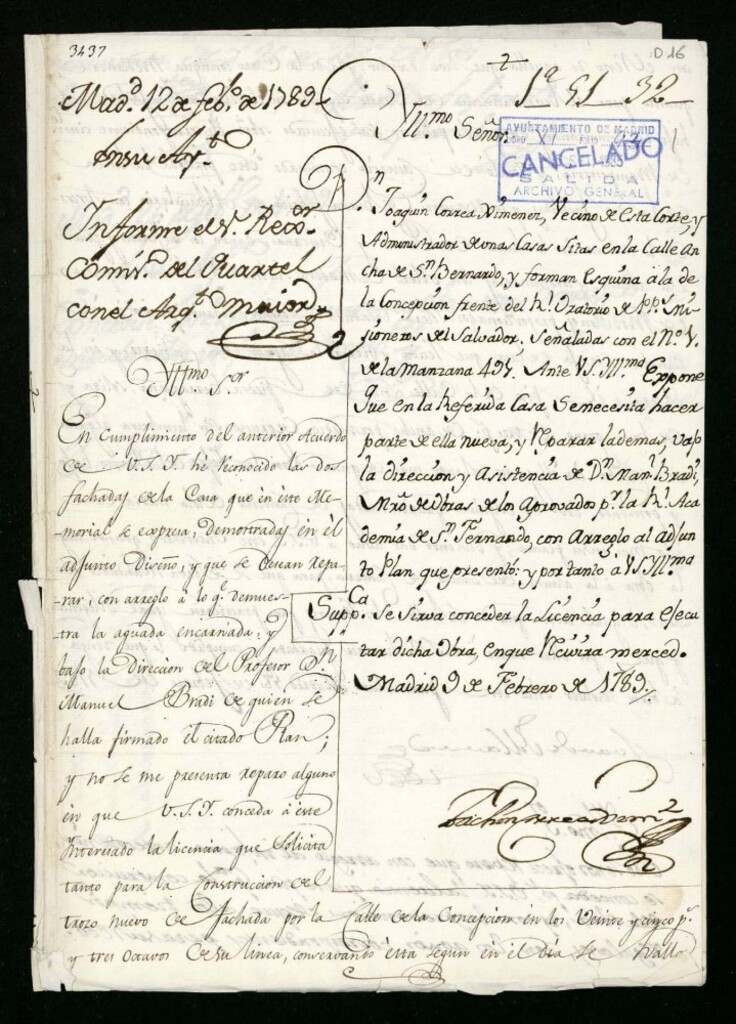 3437
D 16
1ª 51 32
Mad.d 12 de feb.o de 1789
En su Ay.to
Informe el S.r Reg.or
Comis.o del Quartel
con el Arq.to maior
Ill.mo Señor
AYUNTAMIENTO DE MADRID
CANCELADO
SALIDA
ARCHIVO GENERAL
D.n
Joaquin Correa Ximenez, Vecino de Esta Corte, y
Administrador de unas Casas Sitas en la Calle An
cha de S.n Bernardo, y forman Esquina á la de
la Concepcion frente del R.l Oratorio de P.P. Mi
sioneros del Salvador. Señaladas con el N.o
de la Manzana 495. Ante V.S. Ill.ma Expone
Que en la Referida Casa Se necesita hacer
parte de ella nueva, y Reparar lademas, vajo
la direccion y Asistencia de D.n Man.l Bradi,
Mrõ de Obras de los Aprovados p.r la R.l Aca
demia de S.n Fernando, con Arreglo al Adjun
to Plan que presentó; y por tanto á V.S. Ill.ma
Supp.ca se sirva conceder la Licencia para ejecu
tar dicha Obra, en que Recivira merced.
Madrid 9 de Febrero de 1789.
Ill.mo S.or
En cumplimiento del anterior Acuerdo
de V.S.I. hé reconocido las dos
fachadas de la Casa que en este Me-
morial se expresa, demostradas en el
adjunto Diseño, y que se desean repa-
rar, con arreglo á lo q.e demues-
tra la aguada encarnada, y
bajo la Direccion del Profesor D.n
Manuel Bradi de quien se
halla firmado el citado Plan;
y no se me presenta reparo alguno
en que V.S.I. conceda á este
Interesado la licencia que Solicita
tanto para la Construccion del
trozo nuevo de fachada por la Calle de la Concepcion en los Veinte y cinco p.s
y tres octavos de su linea, conservando esta segun en el dia se halla